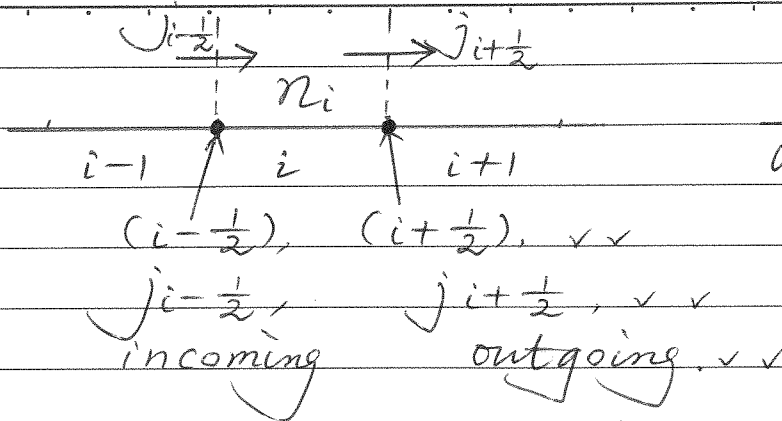 j i-1/2 j i+1/2
n i
i-1 i i+1
(i-1/2), (i+1/2). ✓✓
j i-1/2, j i+1/2, ✓ ✓
incoming outgoing. ✓✓